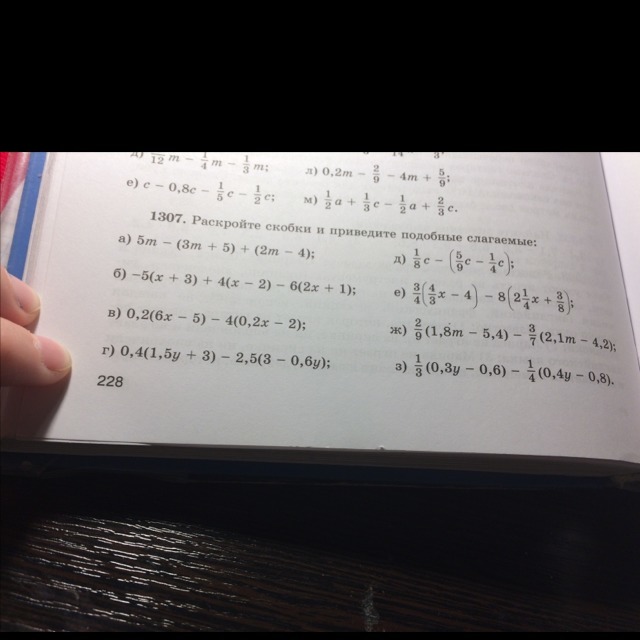 д) \frac{}{12}m − \frac{1}{4}m − \frac{1}{3}m;
л) 0,2m − \frac{2}{9} − 4m + \frac{5}{9};
е) c − 0,8c − \frac{1}{5}c − \frac{1}{2}c;
м) \frac{1}{2}a + \frac{1}{3}c − \frac{1}{2}a + \frac{2}{3}c.
1307. Раскройте скобки и приведите подобные слагаемые:
а) 5m − (3m + 5) + (2m − 4);
б) −5(x + 3) + 4(x − 2) − 6(2x + 1);
в) 0,2(6x − 5) − 4(0,2x − 2);
г) 0,4(1,5y + 3) − 2,5(3 − 0,6y);
д) \frac{1}{8}c − (\frac{5}{9}c − \frac{1}{4}c);
е) \frac{3}{4}(\frac{4}{3}x − 4) − 8(2\frac{1}{4}x + \frac{3}{8});
ж) \frac{2}{9}(1,8m − 5,4) − \frac{3}{7}(2,1m − 4,2);
з) \frac{1}{3}(0,3y − 0,6) − \frac{1}{4}(0,4y − 0,8).
228